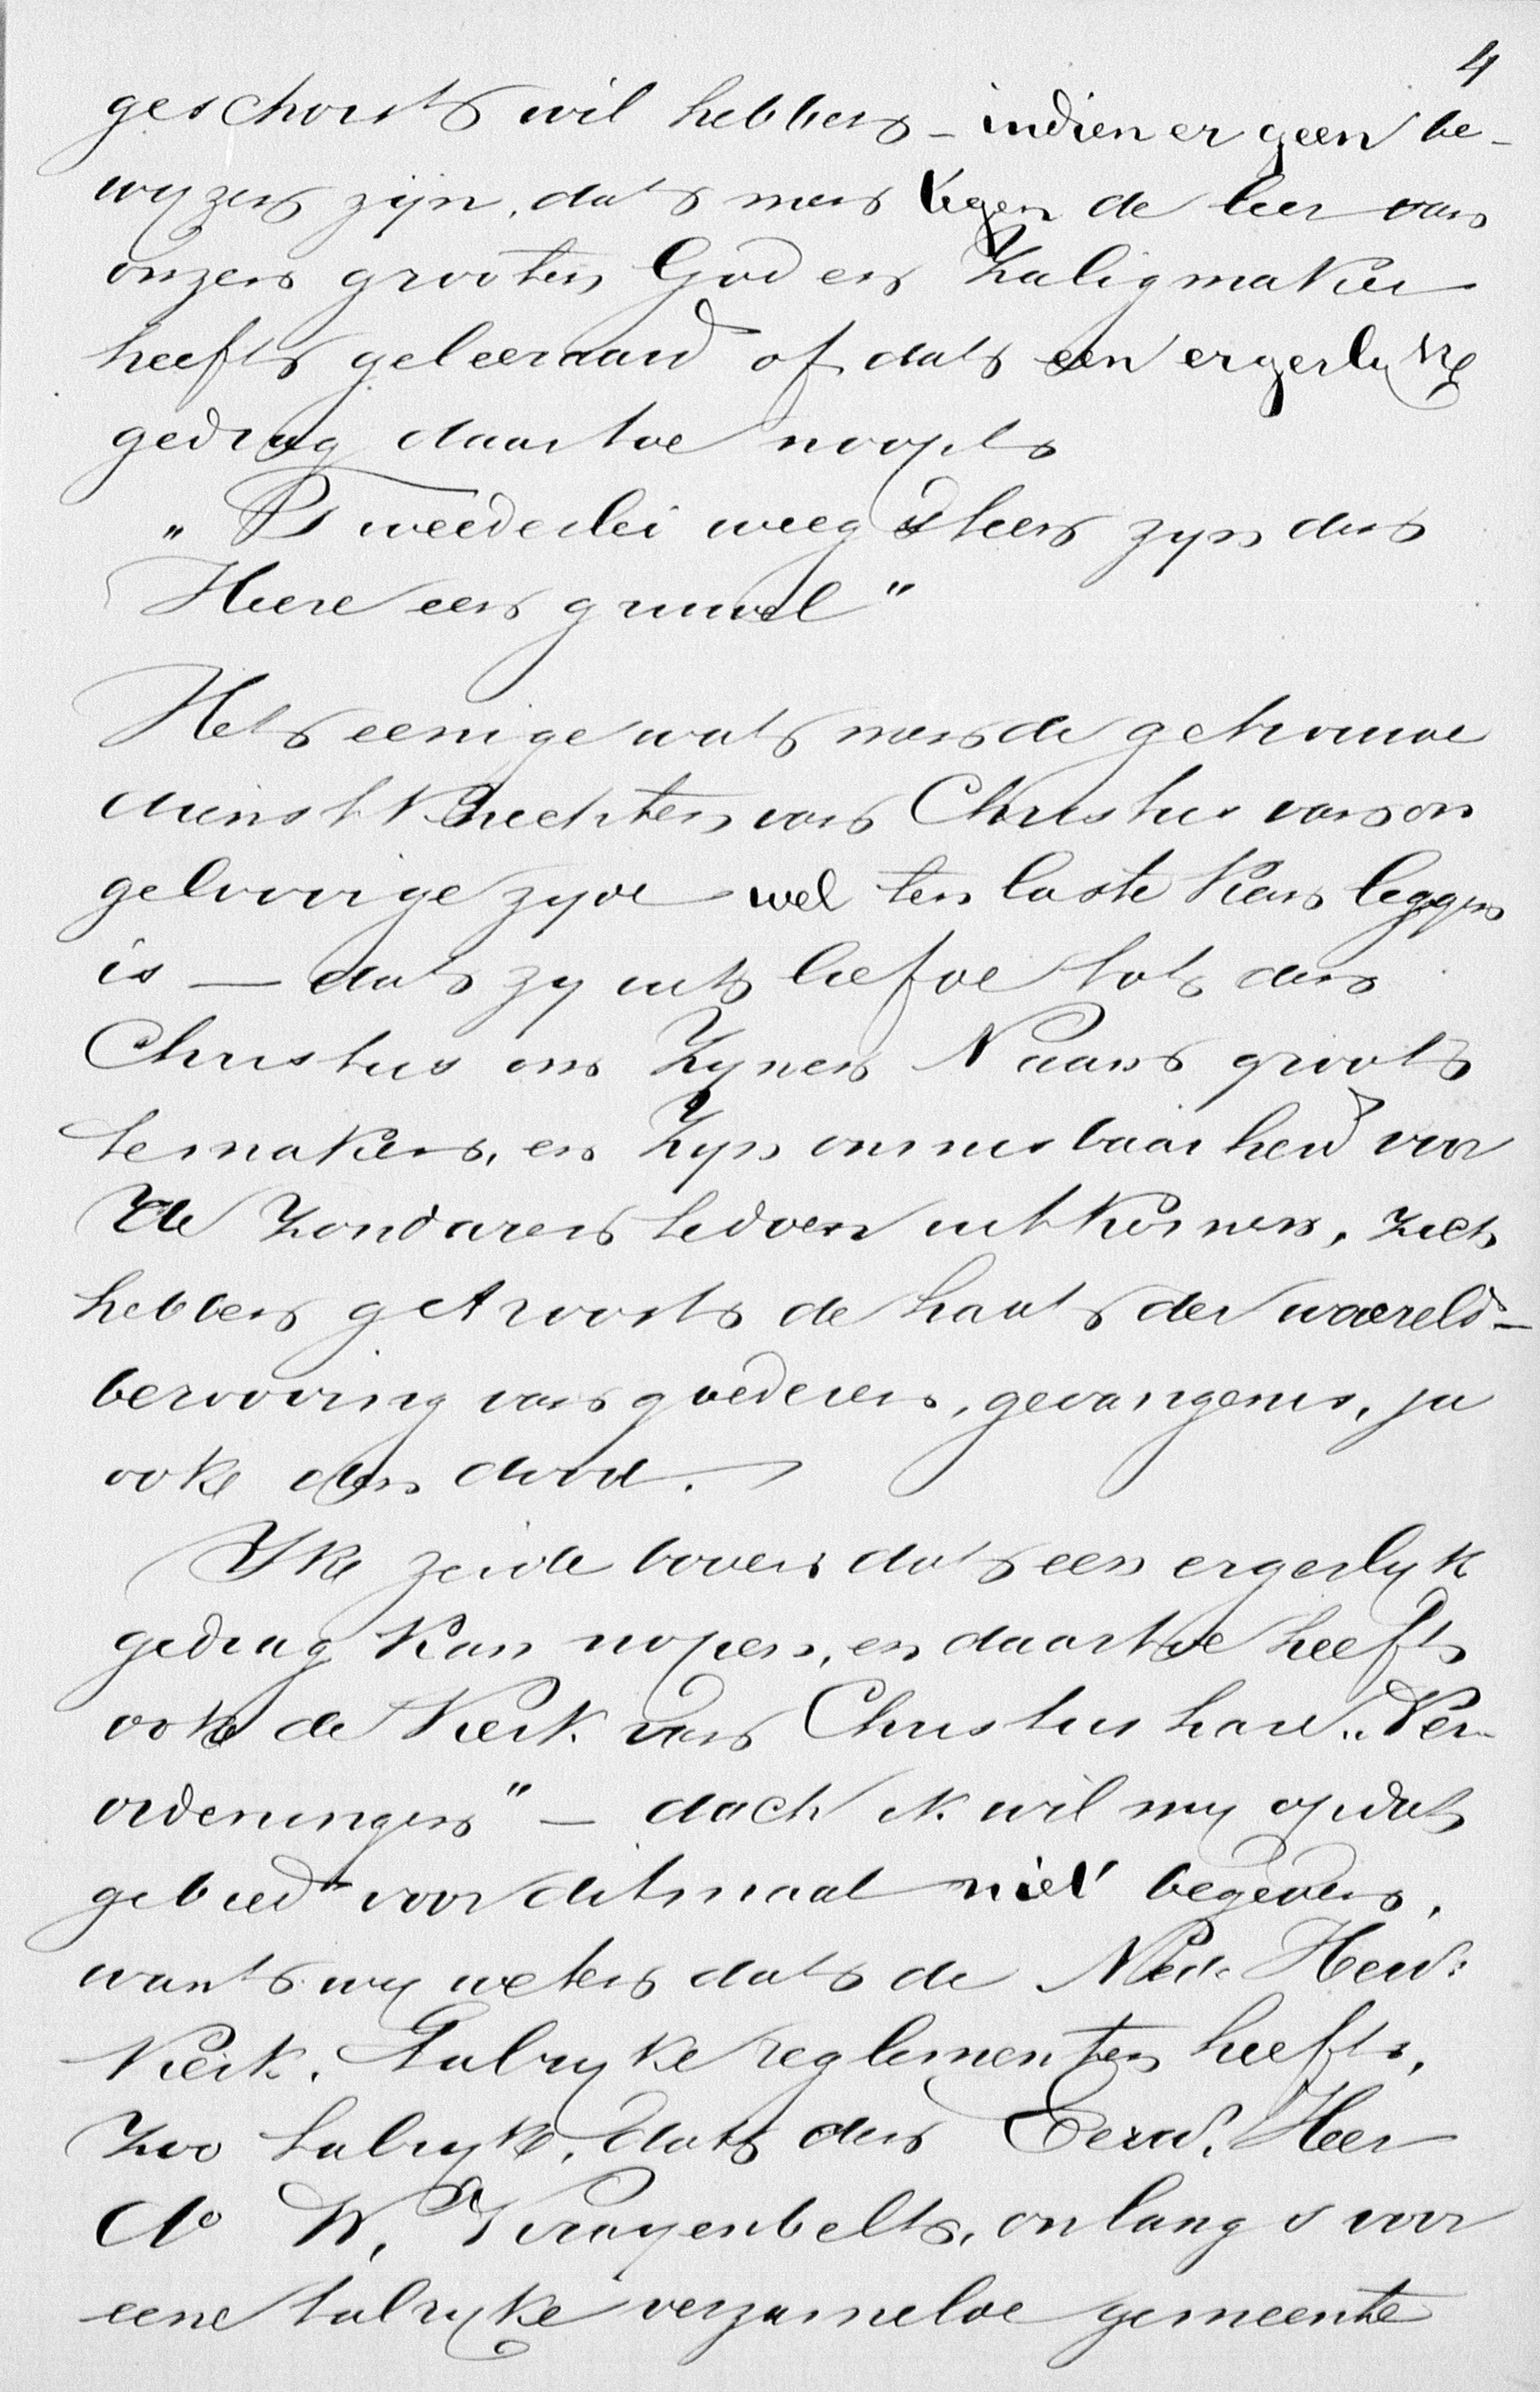 4
geschorst wil hebben – indien er geen be-
wyzen zijn, dat men tegen de leer van
onzen grooten God en Zaligmaker
heeft geleeraard of dat een ergerlyk
gedrag daartoe noopt
„Tweederlei weegsteen zyn den
Heere een gruwel"
Het eenige wat men de getrouwe
dienstknechten van Christus van on
geloovige zyde wel ten laste kan leggen
is — dat zy uit liefde tot den
Christus om Zynen Naam groot
te maken, en Zyn onmisbaarheid voor
de Zondaren te doen uitkomen, zich
hebben getroost de haat der waereld –
berooving van goederen, gevangenis, ja
ook den dood.
Ik zeide boven dat een ergerlyk
gedrag kan nopen, en daartoe heeft
ook de Kerk van Christus hare „Ver-
ordeningen" – doch ik wil my op dat
gebied voor ditmaal niet begeven,
want wy weten dat de Ned. Herv:
Kerk. Talryke reglementen heeft,
Zoo talryk, dat den Eerw. Heer
W. Krayenbelt, onlangs voor
eene talryke verzamelde gemeente